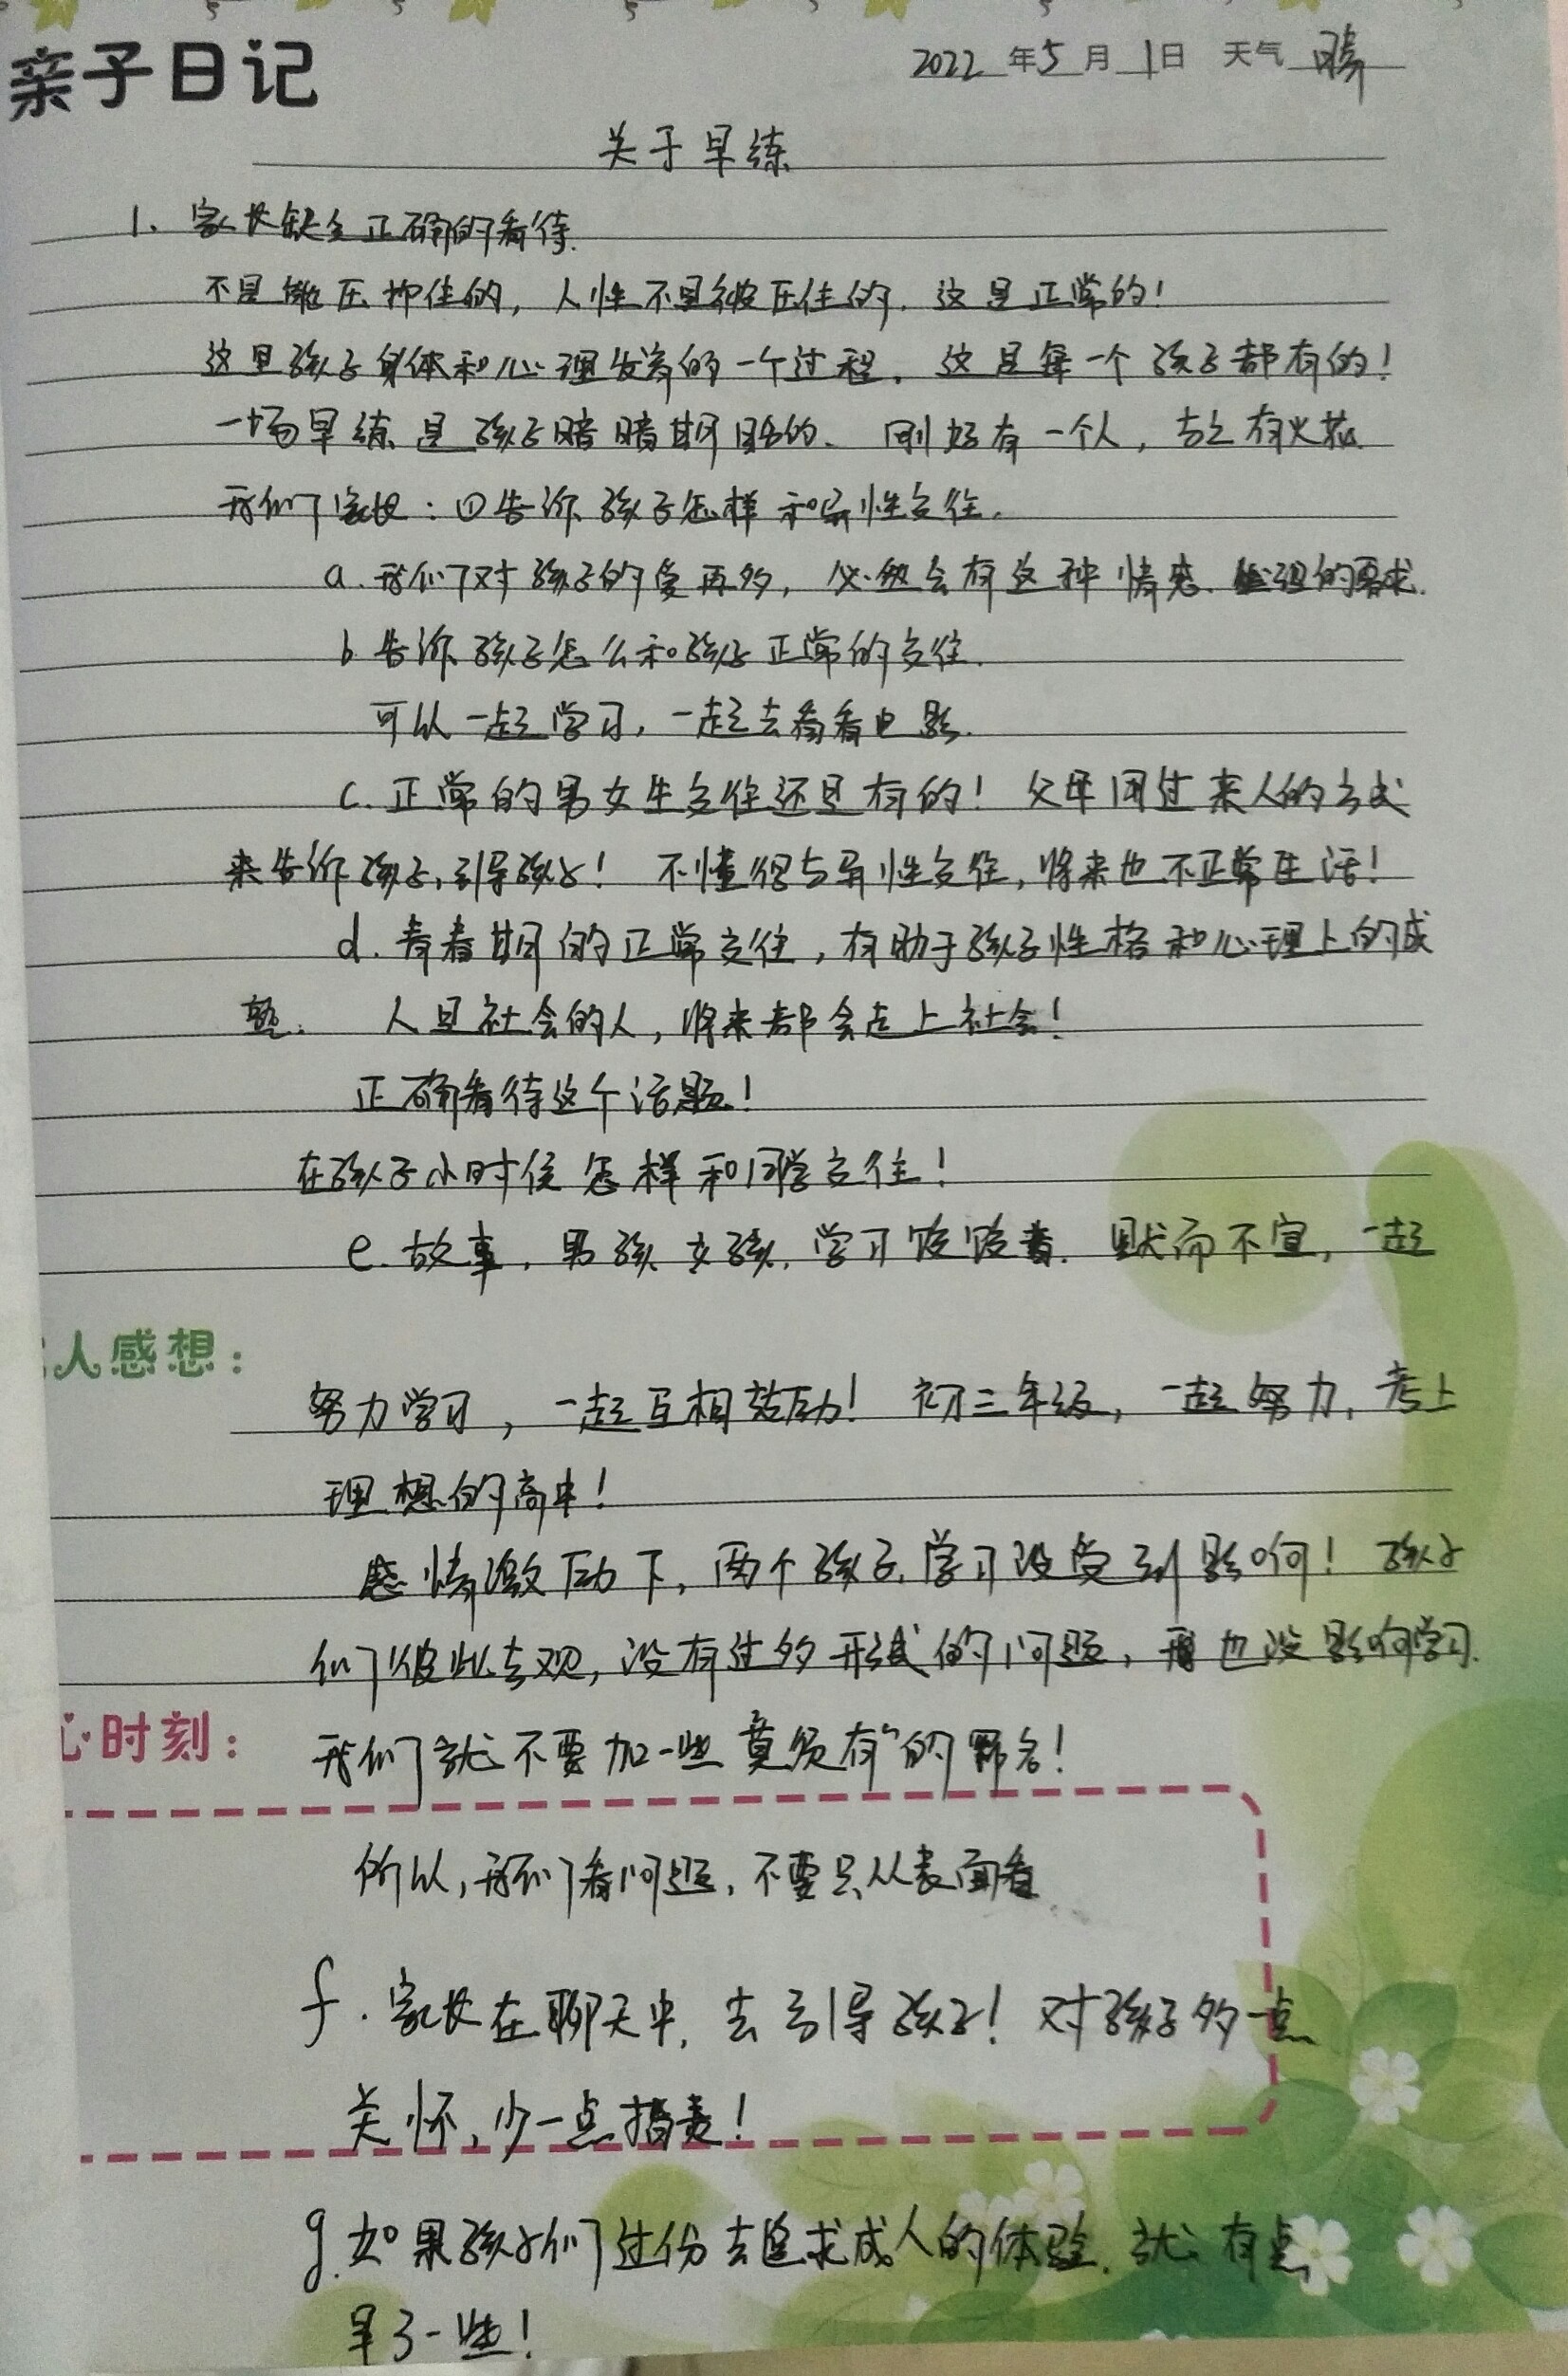 亲子日记
2022年5月1日 天气 晴
关于早练
1、家长缺乏正确的看待.
不是能压抑住的,人性不是被压住的.这是正常的!
这是孩子身体和心理发育的一个过程.这是每一个孩子都有的!
一场早练是孩子暗暗期盼的、刚好有一个人,才有火花
我们家长:①告诉孩子怎样和异性交往.
a.我们对孩子的爱再多,必然会有这种情感.的要求.
b告诉孩子怎么和孩子正常的交往.
可以一起学习,一起去看看电影.
c.正常的男女生交往还是有的!父母用过来人的方式
来告诉孩子,引导孩子!不懂得与异性交往,将来也不正常生活!
d.青春期的正常交往,有助于孩子性格和心理上的成
熟. 人是社会的人,将来都会走上社会!
正确看待这个话题!
在孩子小时侯怎样和同学交往!
e.故事.男孩女孩.学习.默而不宣,一起
人感想:
努力学习,一起互相鼓励!初三年级,一起努力,考上
理想的高中!
感情激励下,两个孩子学习没受到影响!孩子
们彼此,没有过多形式的问题,也没影响学习.
心时刻:
我们就不要加一些"莫须有"的罪名!
所以,我们看问题,不要只从表面看
f.家长在聊天中,去引导孩子!对孩子多一点
关怀,少一点指责!
g.如果孩子们过份去追求成人的体验.就有点
早了一些!